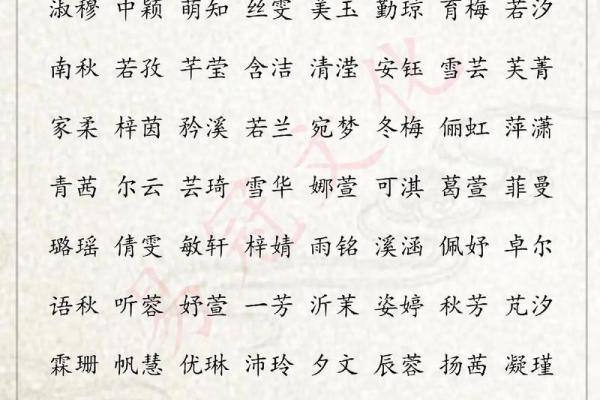 淑穆 中颖 萌知 丝雯 美玉 勤琼 育梅 若汐
南秋 若孜 芊莹 含洁 清滢 安钰 雪芸 芙菁
家柔 梓茵 矜溪 若兰 宛梦 冬梅 俪虹 萍潇
青茜 尔云 芸琦 雪华 娜萱 可淇 葛萱 菲曼
璐瑶 倩雯 敏轩 梓婧 雨铭 溪涵 佩妤 卓尔
语秋 听蓉 妤萱 一芳 沂茉 姿婷 秋芳 芃汐
霖珊 帆慧 优琳 沛玲 夕文 辰蓉 扬茜 凝瑾